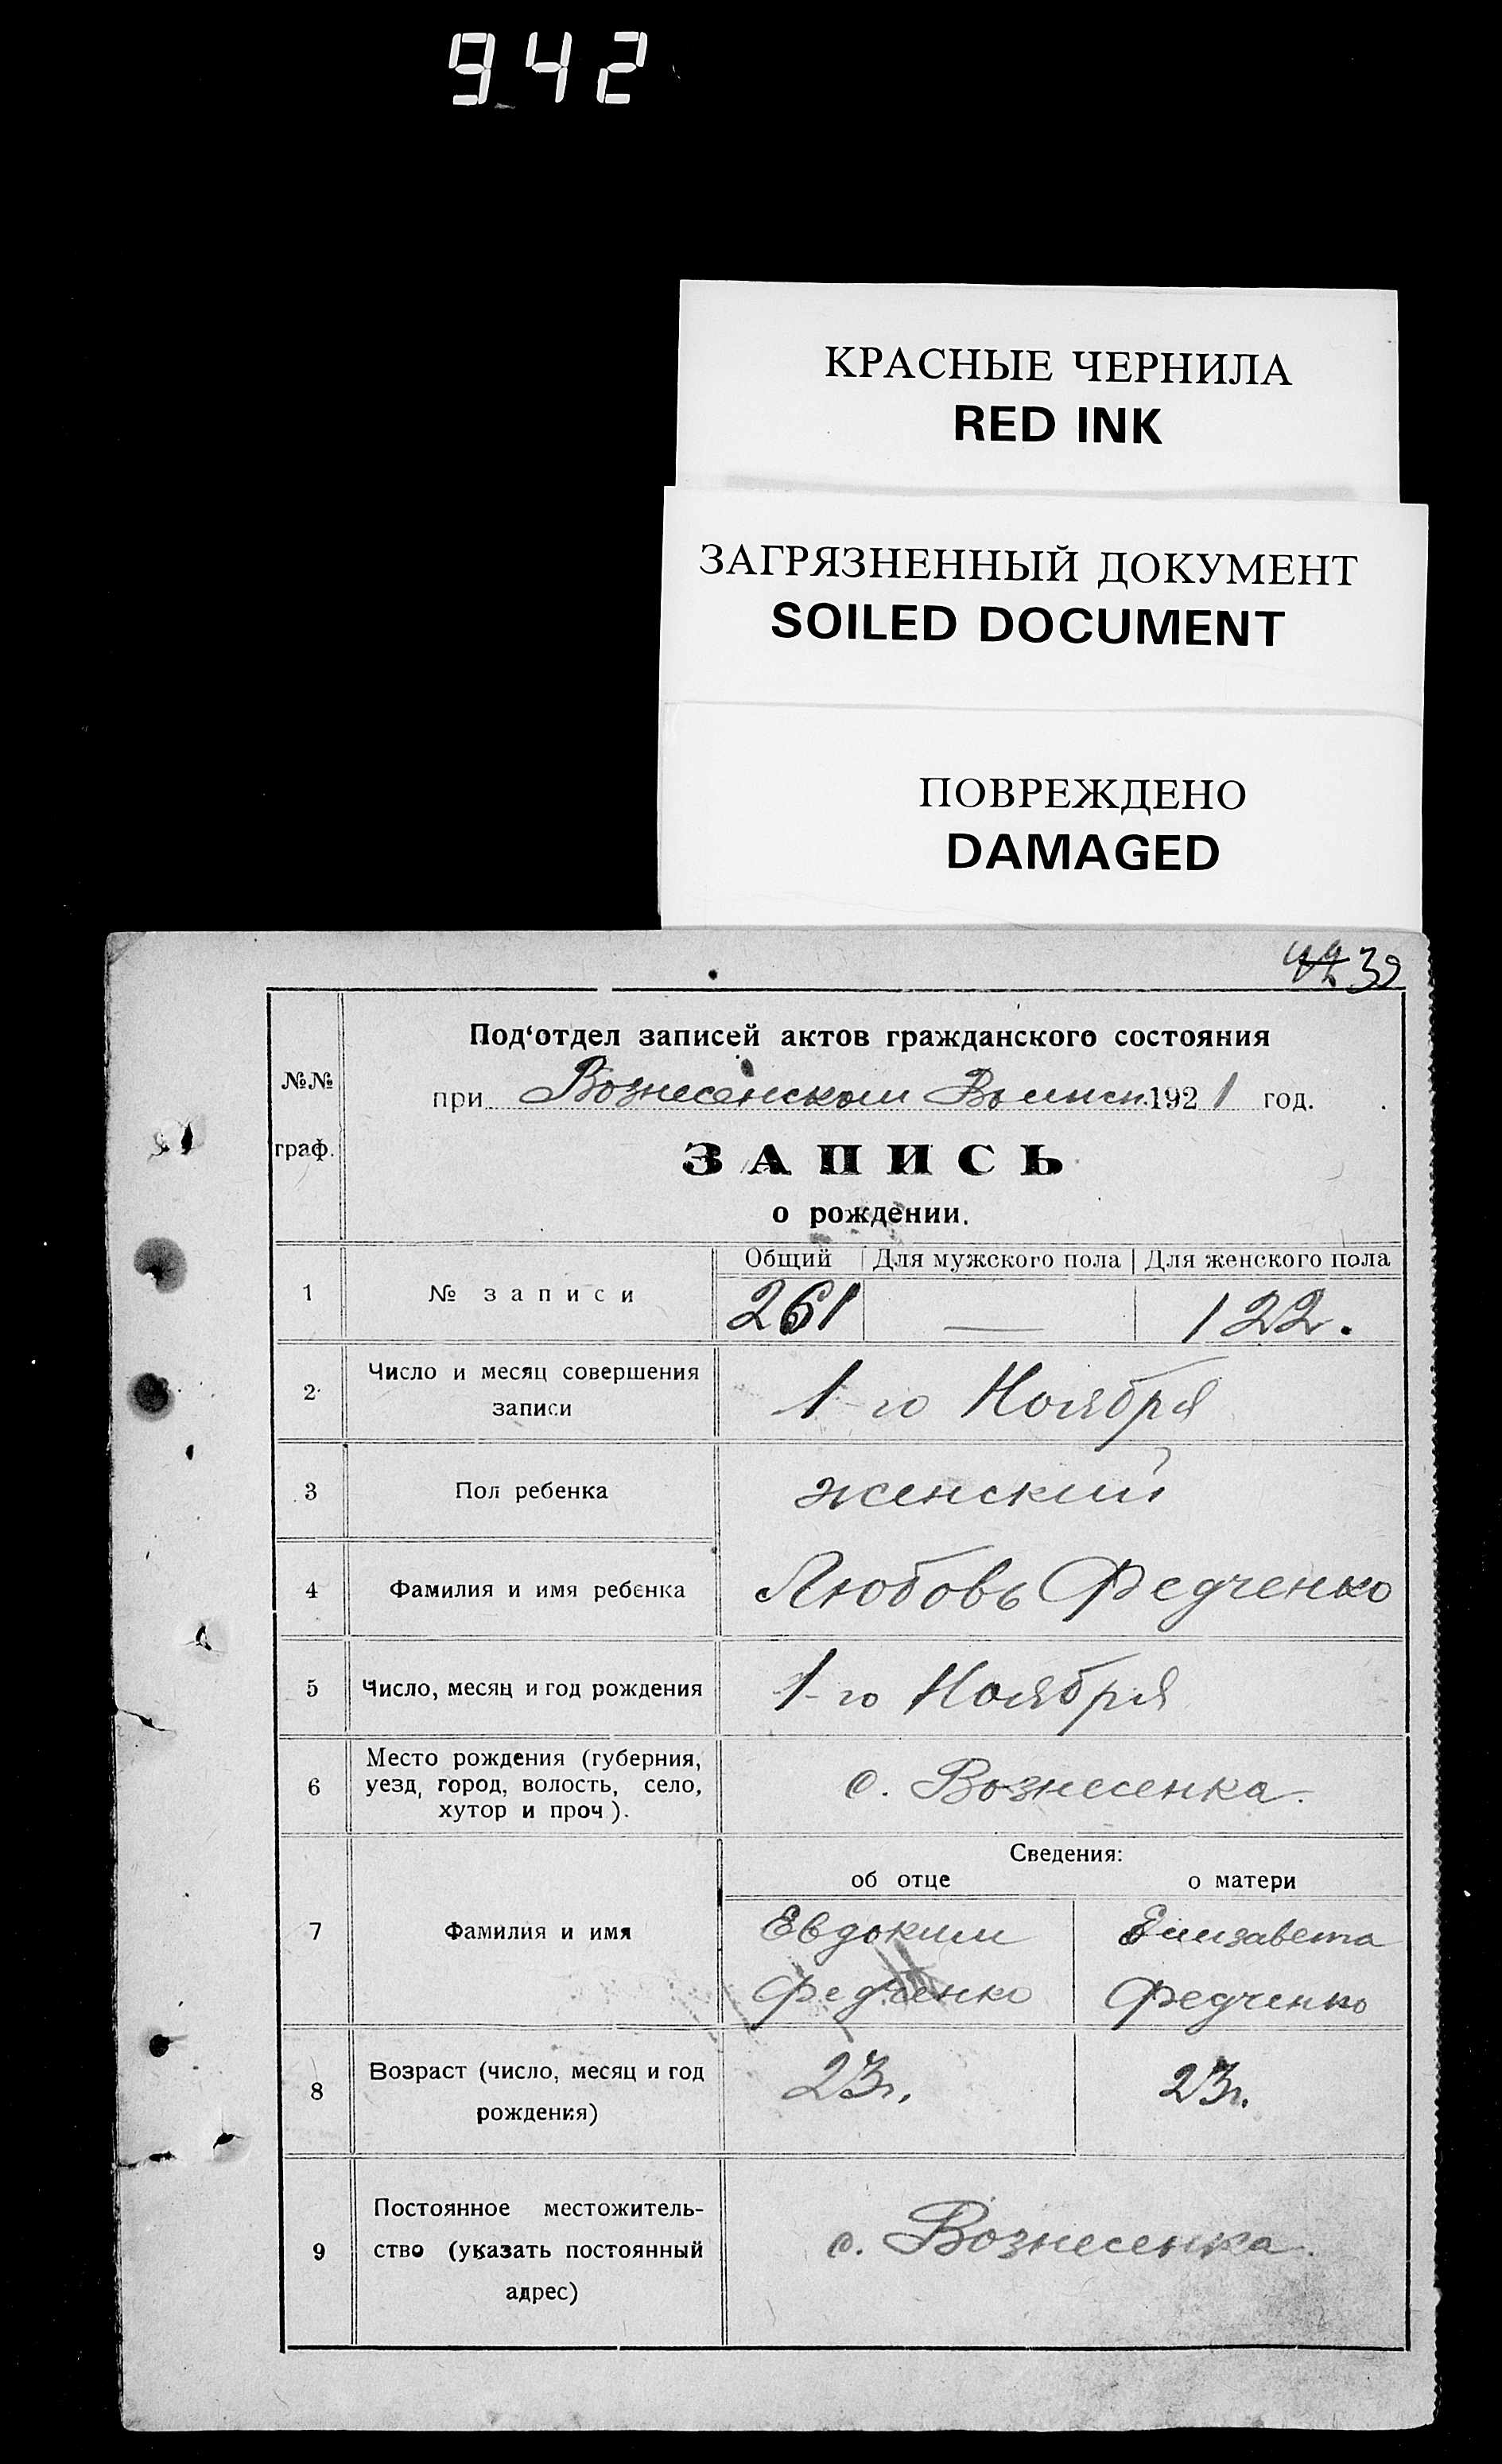 942
КРАСНЫЕ ЧЕРНИЛА
RED INK
ЗАГРЯЗНЕННЫЙ ДОКУМЕНТ
SOILED DOCUMENT
ПОВРЕЖДЕНО
DAMAGED
39
Под‘отдел записей актов гражданского состояния
№№ граф.
при Вознесенском 1921 год.
ЗАПИСЬ
о рождении.
Общий Для мужского пола Для женского пола
1 № записи 261 — 122.
2 Число и месяц совершения
записи
1-го Ноября
3 Пол ребенка женский
4 Фамилия и имя ребенка Любовь Федченко
5 Число, месяц и год рождения 1-го Ноября
6 Место рождения (губерния,
уезд, город, волость, село,
хутор и проч).
с. Вознесенка.
Сведения:
об отце о матери
7 Фамилия и имя Евдоким Елизавета
Федченко Федченко
8 Возраст (число, месяц и год
рождения)
23г. 23г.
9 Постоянное местожитель-
ство (указать постоянный
адрес)
с. Вознесенка.